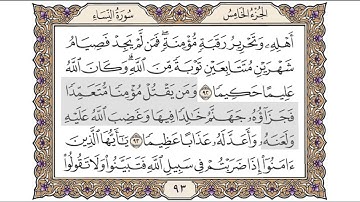 الجزء الخامس
سورة النساء
أهله وتحرير رقبة مؤمنة فمن لم يجد فصيام
شهرين متتابعين توبة من الله وكان الله
عليما حكيما ٩٢ ومن يقتل مؤمنا متعمدا
فجزاؤه جهنم خالدا فيها وغضب الله عليه
ولعنه وأعد له عذابا عظيما ٩٣ يا أيها الذين
ءامنوا إذا ضربتم في سبيل الله فتبينوا ولا تقولوا
٩٣